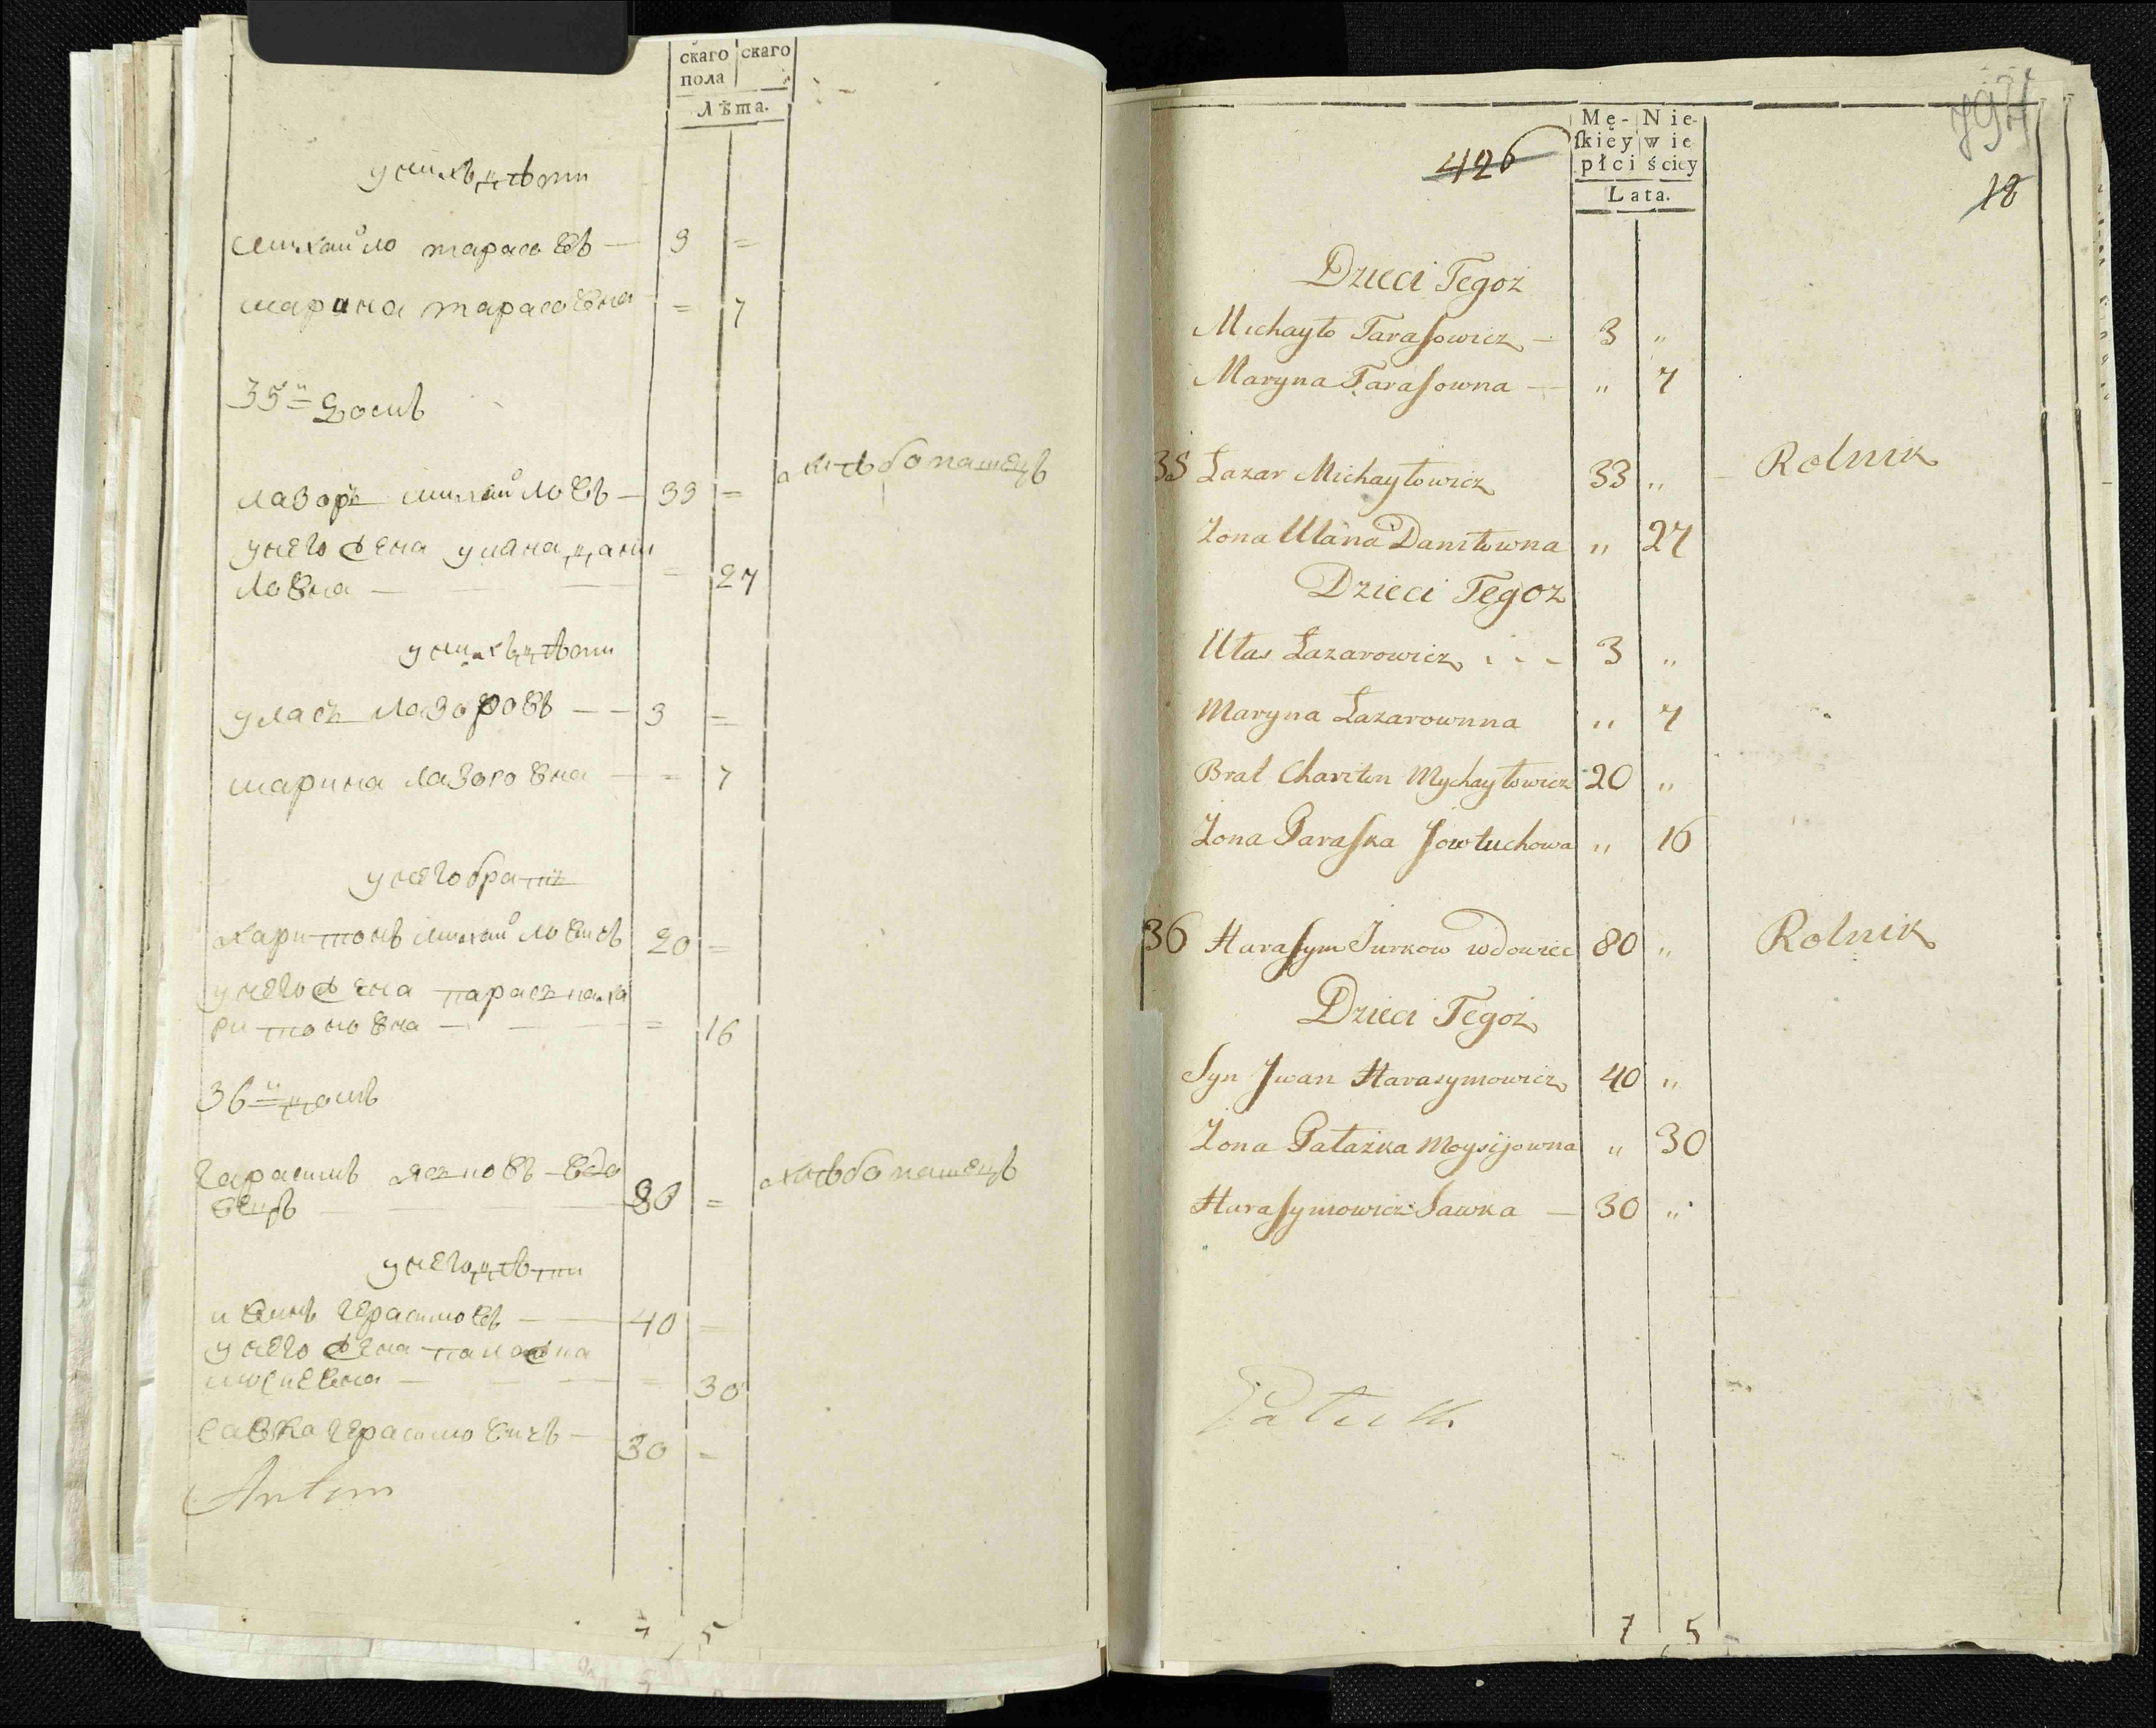 скаго скаго
пола
Лѣта.
у нихъ дѣти
михайло тарасовъ — 3 =
марина тарасовна = 7
35й домъ
лазоръ михайловъ — 33 = хлѣбопашецъ
у него жена уляна дани
ловна — — = 27
у нихъ дѣти
уласъ лазоровъ — — 3 =
марина лазоровна — = 7
у него братъ
харитонъ михайловичъ 20 =
у него жена параска ха
ритоновна — — = 16
36й домъ
гарасимъ вдо
вецъ — — 80 = хлѣбопашецъ
у него дѣти
иванъ герасимовъ — 40 —
у него жена палажка
мосиевна — — = 30
савка герасимовичъ — 30 =
Antim
7 5
794
426
Mę- Nie-
ſkiéy wie
płci ściey
Lata.
18
Dzieci Tegoż
Michayło Taraſowicz — 3 "
Maryna Taraſowna — " 7
35 Łazar Michayłowicz 33 " — Rolnik
Żona Ulana Daniłowna " 27
Dzieci Tegoz
Ułas Łazarowicz . - - 3 "
Maryna Łazarownna " 7
Brat Chariton Mychayłowicz 20 "
Żona Paraſka Jowtuchowa " 16
36 Haraſym Jurkow wdowiec 80 " Rolnik
Dzieci Tegoż
Syn Jwan Harasymowicz 40 "
Żona Pałażka Moysijowna " 30
Haraſymowicz Sawka — 30 "
7 5